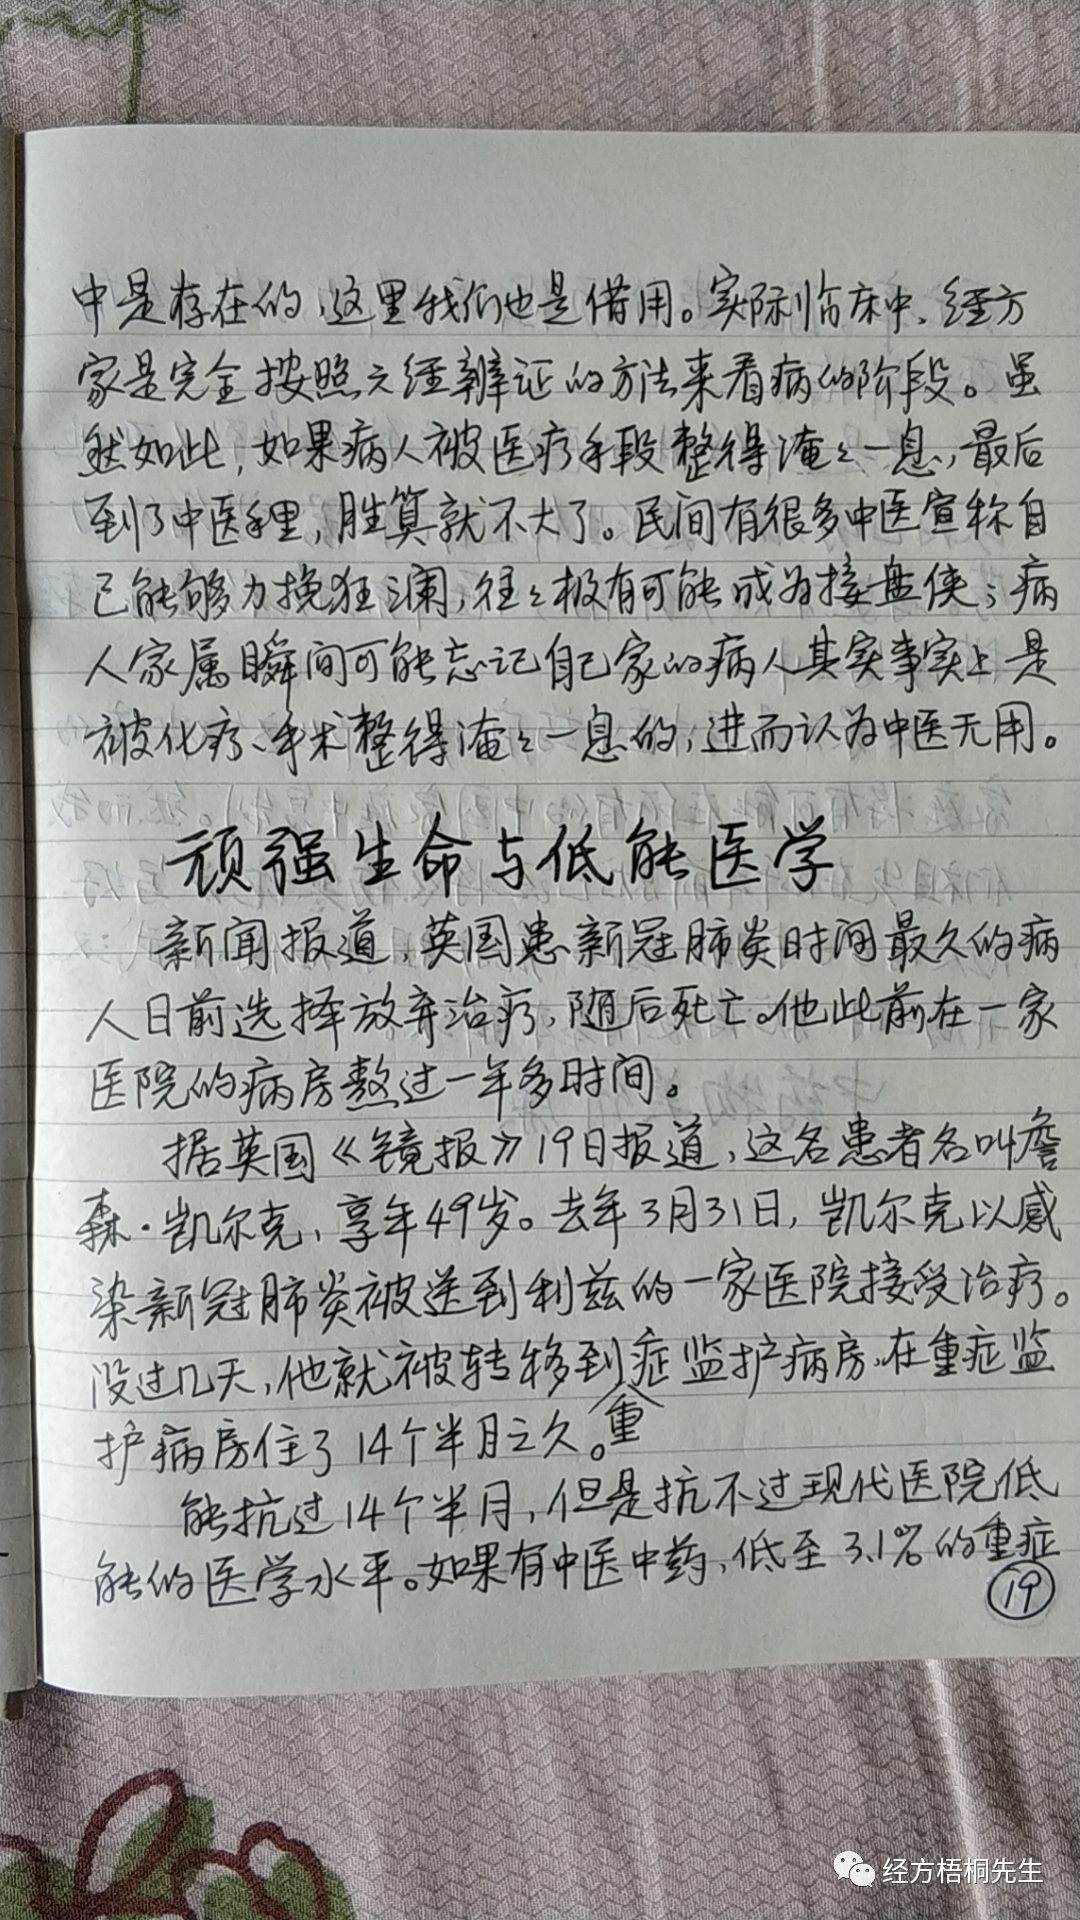 中是存在的，这里我们也是借用。实际临床中、经方
家是完全按照六经辨证的方法来看病的阶段。虽
然如此，如果病人被医疗手段整得淹々一息，最后
到了中医手里，胜算就不大了。民间有很多中医宣称自
己能够力挽狂澜，往々极有可能成为接盘侠；病
人家属瞬间可能忘记自己家的病人其实事实上是
被化疗、手术整得淹々一息的，进而认为中医无用。
顽强生命与低能医学
新闻报道，英国患新冠肺炎时间最久的病
人日前选择放弃治疗，随后死亡。他此前在一家
医院的病房熬过一年多时间。
据英国《镜报》19日报道，这名患者名叫詹
森·凯尔克，享年49岁。去年3月31日，凯尔克以感
染新冠肺炎被送到利兹的一家医院接受治疗。
没过几天，他就被转移到重症监护病房，在重症监
护病房住了14个半月之久。
能抗过14个半月，但是抗不过现代医院低
能的医学水平。如果有中医中药，低至3.1%的重症
19
经方梧桐先生